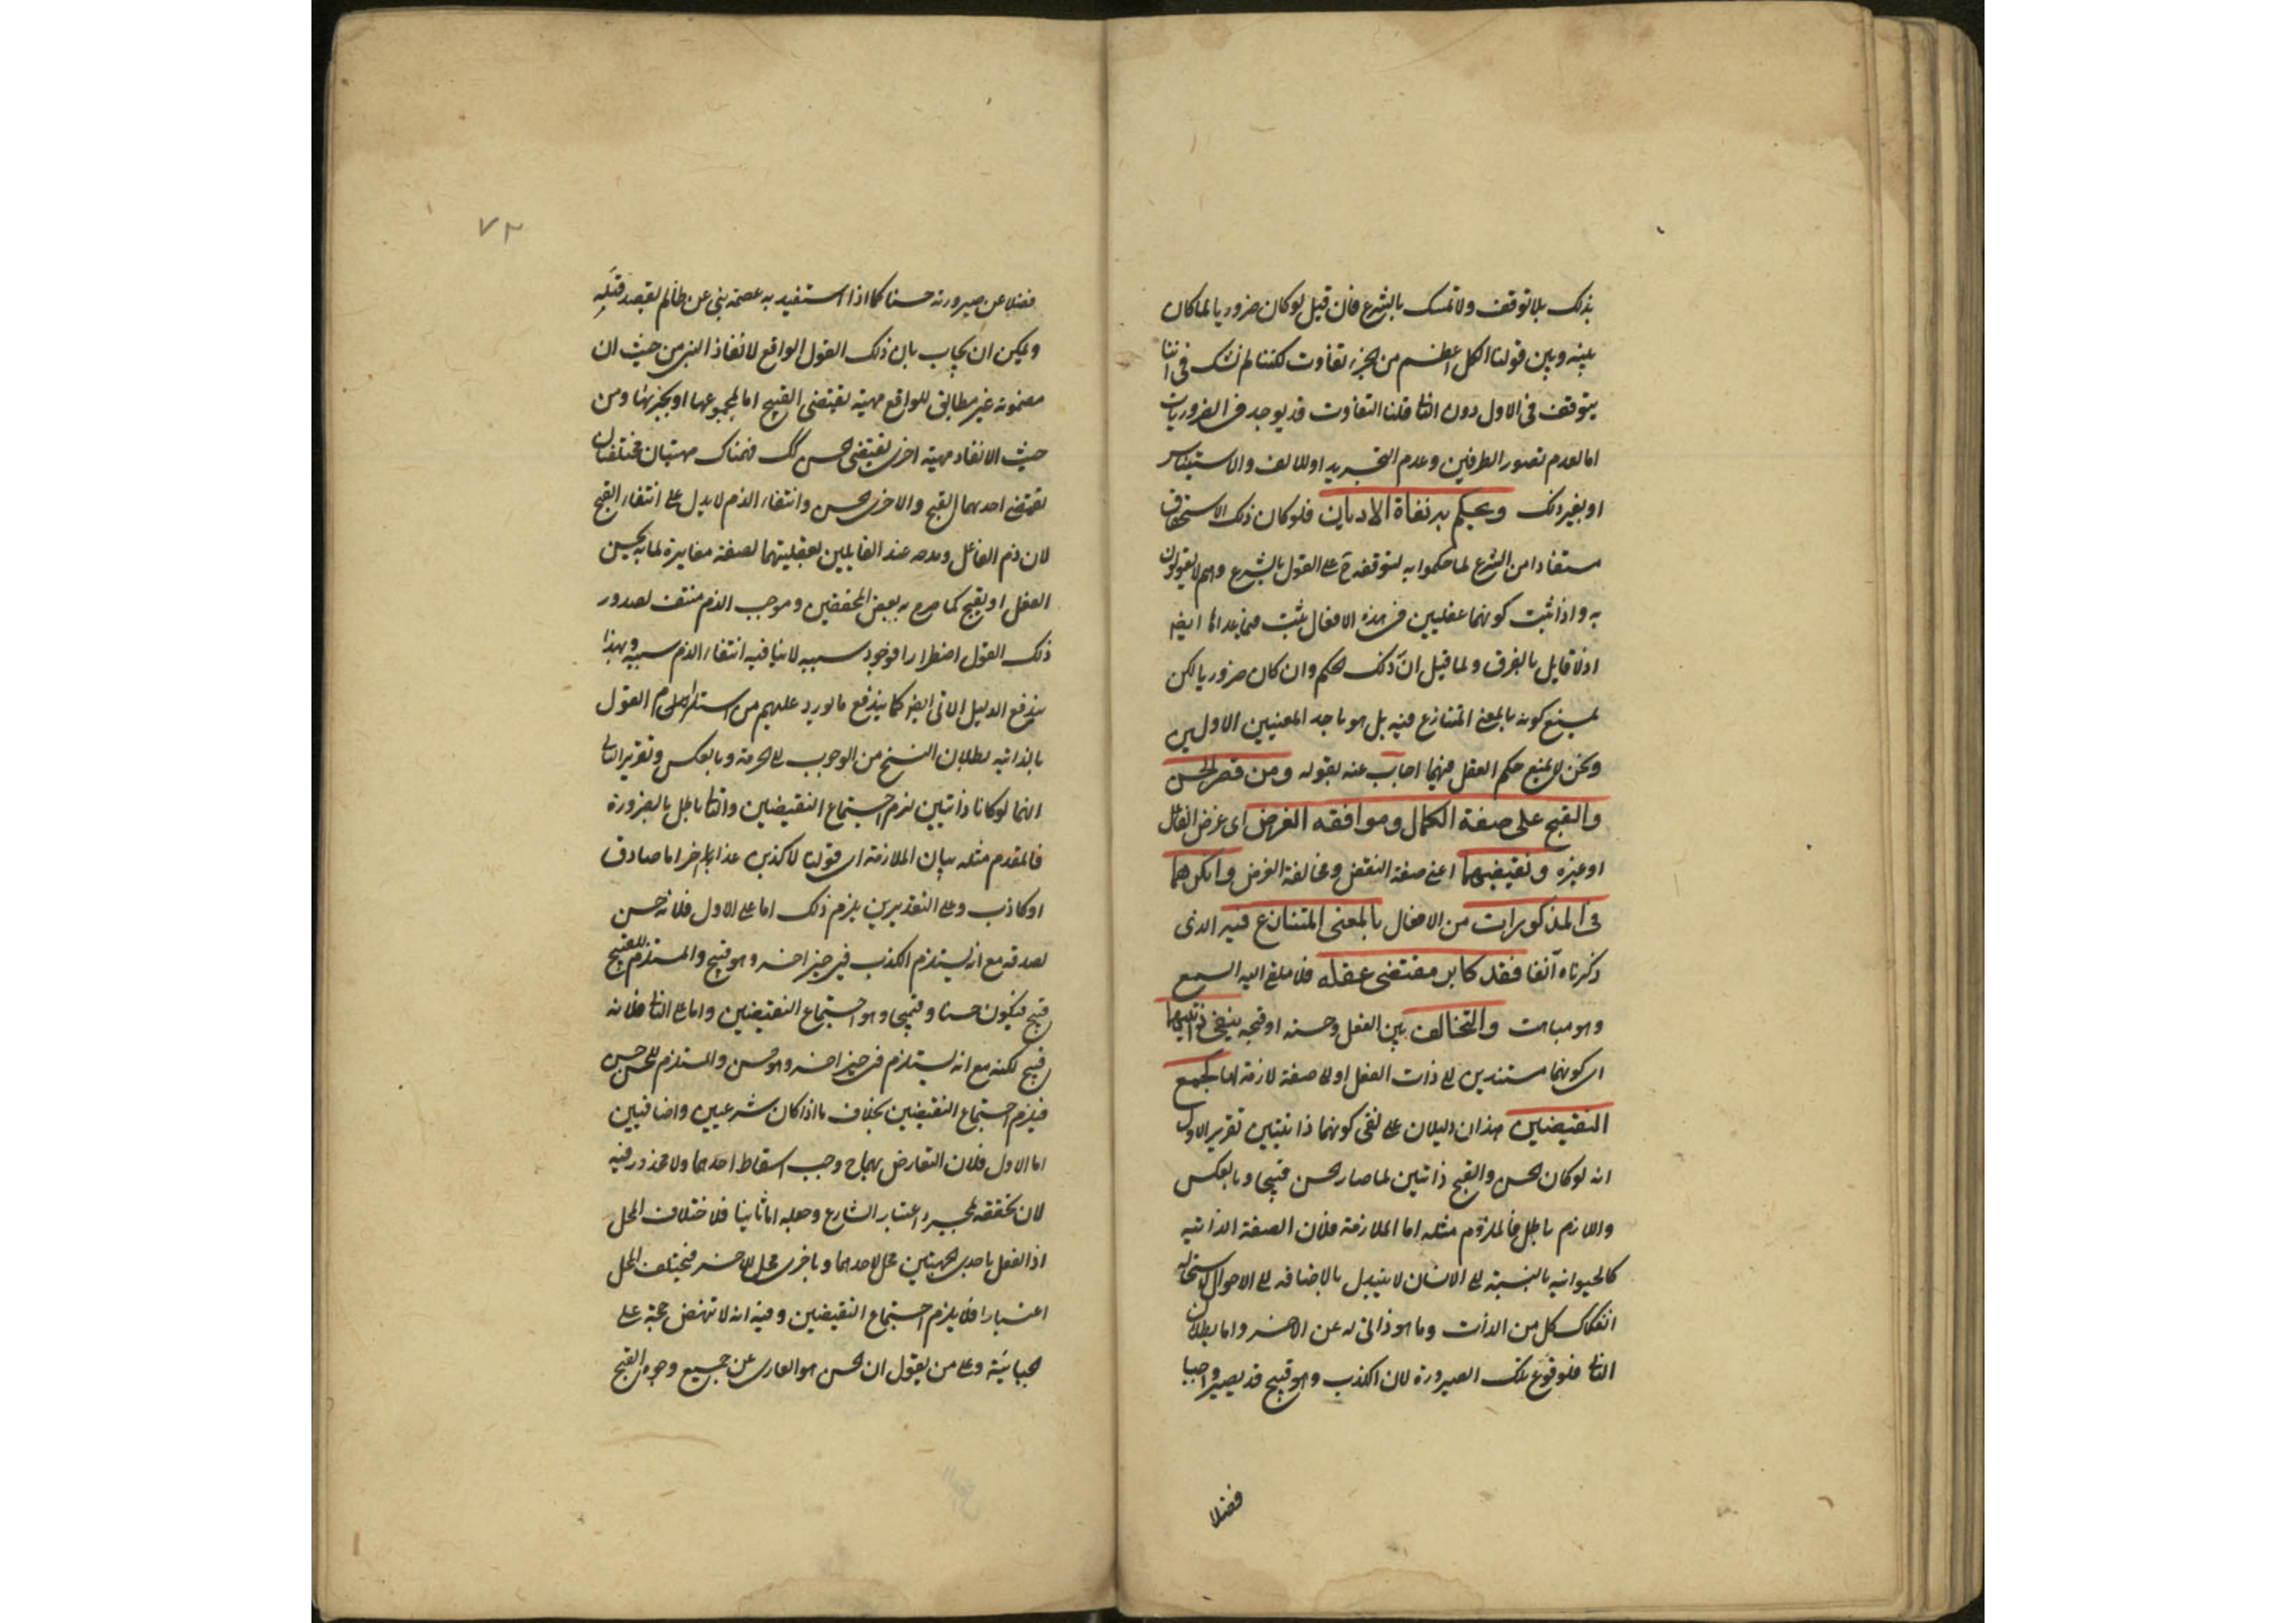 بذلك بلا توقف ولا تمسك بالشرع فان قيل لو كان ضروريا لما كان
بينه وبين قولنا الكل اعظم من الجزء تفاوت لكننا لم نشك في اننا
نتوقف في الاول دون الثاني قلنا التفاوت قد يوجد في الضروريات
اما لعدم تصور الطرفين وعدم التجريد او للالف والاستيناس
او بغير ذلك ويحكم به نفاة الاديان فلو كان ذلك الاستحقاق
مستفادا من الشرع لما حكموا به لتوقفه ح على القول بالشرع وهم لا يقولون
به واذا ثبت كونهما عقليين في هذه الافعال ثبت فيما عداها ايضا
اذ لا قايل بالفرق ولما قيل ان ذلك الحكم وان كان ضروريا لكن
يمنع كونه بالمعنى المتنازع فيه بل هو باحد المعنيين الاولين
ونحن لا نمنع حكم العقل فيهما اجاب عنه بقوله ومن قصر الحسن
والقبح على صفة الكمال وموافقه الغرض اى غرض الفاعل
او غيره ونقيضيهما اعني صفة النقص ومخالفة الغرض وانكرهما
في المذكورات من الافعال بالمعنى المتنازع فيه الذى
ذكرناه آنفا فقد كابر مقتضى عقله فلا يلقى اليه السمع
وهو مباهت والتخالف بين الفعل وحسنه او قبحه ينفي ذاتيتهما
اى كونهما مستندين الى ذات الفعل او الى صفة لازمة لها كجمع
النقيضين هذان دليلان على نفى كونهما ذاتيتين تقرير الاول
انه لو كان الحسن والقبح ذاتين لما صار الحسن قبيحا وبالعكس
واللازم باطل فالملزوم مثله اما الملازمة فلان الصفة الذاتية
كالحيوانية بالنسبة الى الانسان لا يتبدل بالاضافه الى الاحوال لاستحالة
انفكاك كل من الذات وما هو ذاتى له عن الاخر واما بطلان
التالى فلوقوع تلك الصيرورة لان الكذب وهو قبيح قد يصير واجبا
فضلا
٧٢
فضلا عن صيرورته حسنا كما اذا استفيد به عصمة نبى عن ظالم يقصد قتله
ويمكن ان يجاب بان ذلك القول الواقع لانقاذ النبى من حيث ان
مضمونه غير مطابق للواقع مهية تقتضى القبح اما لمجموعها او بجزئها ومن
حيث الانقاذ مهية اخرى تقتضى الحسن كك فهناك مهيتان مختلفتان
تقتضى احدهما القبح والاخرى الحسن وانتفاء الذم لا يدل على انتفاء القبح
لان ذم الفاعل ومدحه عند القايلين بعقليتهما لصفة مغايرة لما به يحسن
الفعل او يقبح كما صرح به بعض المحققين وموجب الذم منتف لصدور
ذلك القول اضطرارا فوجود سببه لا ينافيه انتفاء الذم سببه وبهذا
يندفع الدليل الاتى ايضا كما يندفع ما اورد عليهم من استلزام القول
بالذاتية بطلان النسخ من الوجوب الى الحرمة وبالعكس وتقرير الثانى
انهما لو كانا ذاتيين لزم اجتماع النقيضين والتالى باطل بالضرورة
فالمقدم مثله بيان الملازمة ان قولنا لاكذبن غدا اما صادق
او كاذب وعلى التقديرين يلزم ذلك اما على الاول فلانه حسن
لصدقه مع انه يستلزم الكذب في خبر اخر وهو قبيح والمستلزم للقبيح
قبيح فيكون حسنا وقبيحا وهو اجتماع النقيضين واما على الثانى فلانه
قبيح لكنه مع انه يستلزم في خبر اخر وهو حسن والمستلزم للحسن حسن
فيلزم اجتماع النقيضين بخلاف ما اذا كان شرعيين واضافيين
اما الاول فلان التعارض بهما ح وجب اسقاط احدهما ولا محذور فيه
لان تحققه بمجرد اعتبار الشارع وجعله اما ثانيا فلاختلاف المحل
اذ الفعل باحدى الجهتين محل لاحدهما وباخرى محل للاخر فيختلف المحل
اعتبارا فلا يلزم اجتماع النقيضين وفيه انه لا تنهض حجة على
الجبائية وعلى من يقول ان الحسن هو العارى عن جميع وجوه القبح